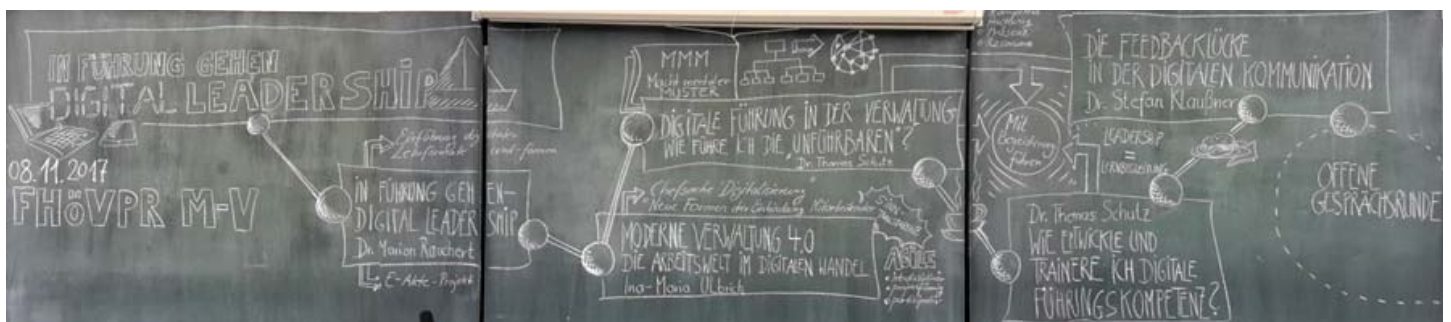 IN FÜHRUNG GEHEN
DIGITAL LEADERSHIP
08.11.2017
FHöVPR M-V
Einführung
IN FÜHRUNG GEHEN-
DIGITAL LEADERSHIP
Dr. Marion Rauchert
E-Akte-Projekt
MMM
Macht mentaler
MUSTER
DIGITALE FÜHRUNG IN DER VERWALTUNG
WIE FÜHRE ICH DIE „UNFÜHRBAREN"?
Dr. Thomas Schutz
Chefsache Digitalisierung
Neue Formen der Einbindung Mitarbeitender
MODERNE VERWALTUNG 4.0
DIE ARBEITSWELT IM DIGITALEN WANDEL
Ina-Maria Ulbrich
AGILES
Mit
Begeisterung
führen
DIE FEEDBACKLÜCKE
IN DER DIGITALEN KOMMUNIKATION
Dr. Stefan Klaußner
LEADERSHIP
=
LERNBEGLEITUNG
Dr. Thomas Schutz
WIE ENTWICKLE UND
TRAINERE ICH DIGITALE
FÜHRUNGSKOMPETENZ?
OFFENE
GESPRÄCHSRUNDE